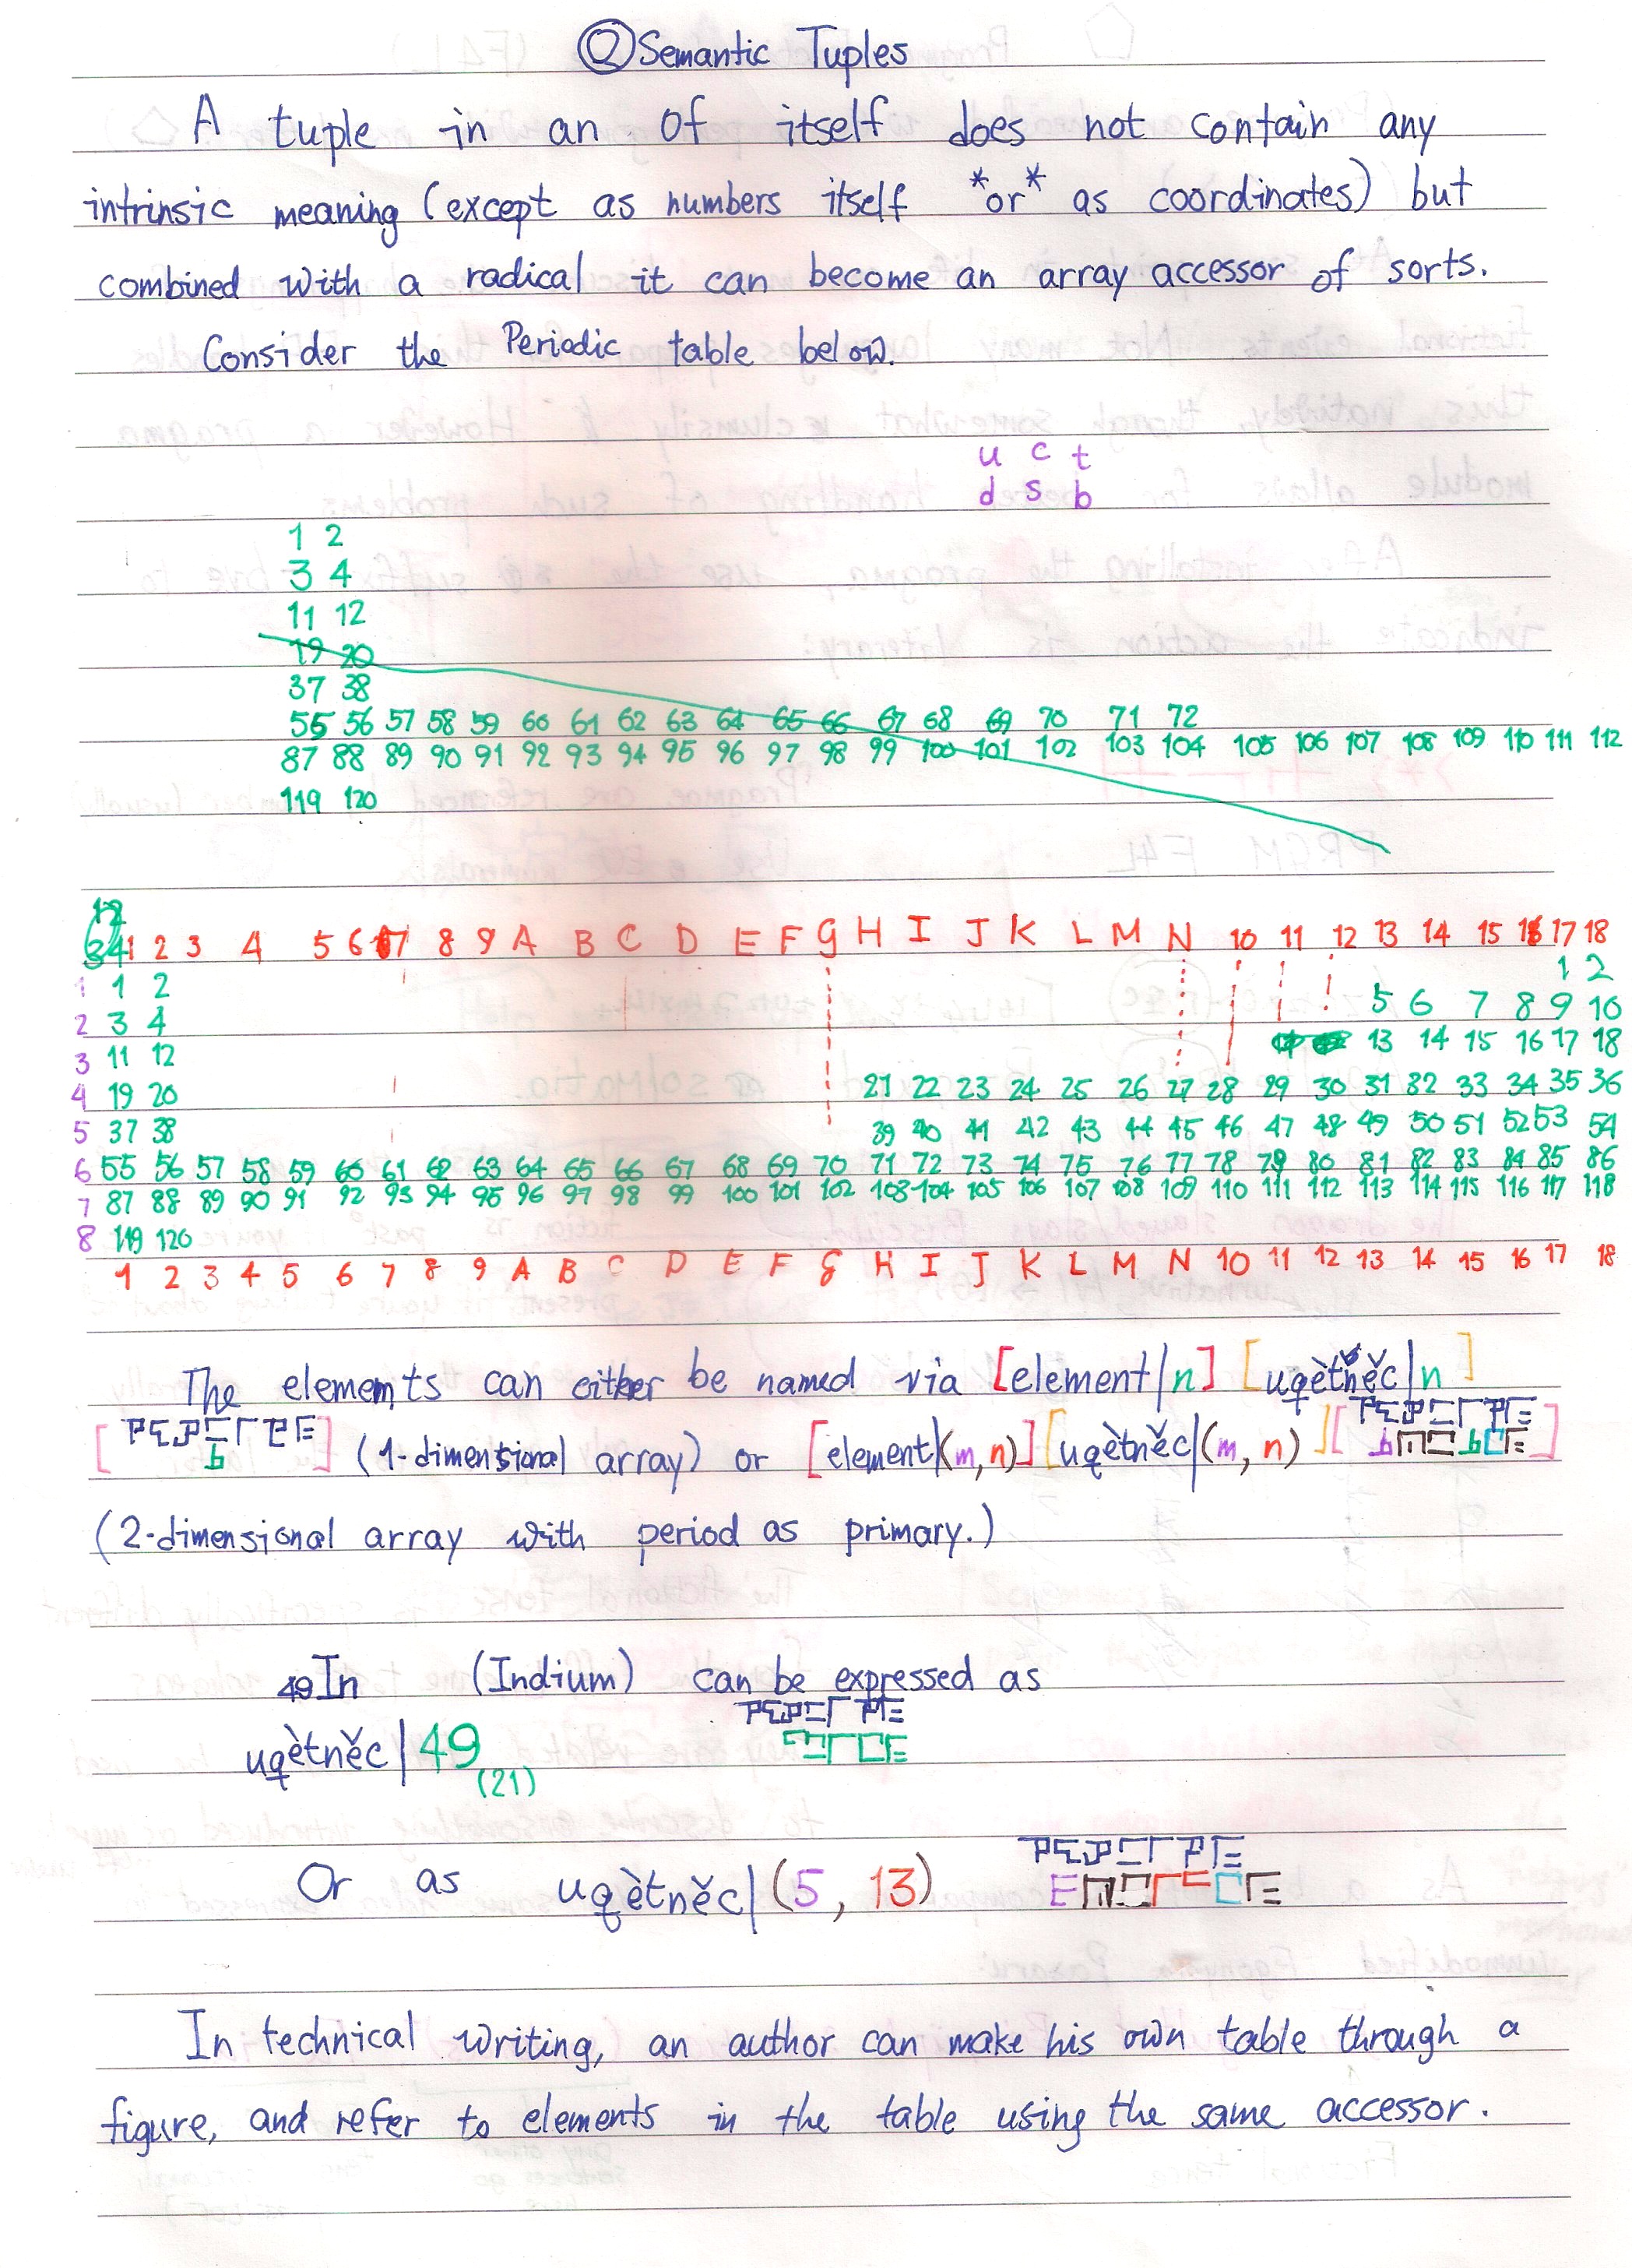 ② Semantic Tuples
A tuple in an of itself does not contain any
intrinsic meaning (except as numbers itself *or* as coordinates) but
combined with a radical it can become an array accessor of sorts.
Consider the Periodic table below.
u c t
d s b
1 2
3 4
11 12
19 20
37 38
55 56 57 58 59 60 61 62 63 64 65 66 67 68 69 70 71 72
87 88 89 90 91 92 93 94 95 96 97 98 99 100 101 102 103 104 105 106 107 108 109 110 111 112
119 120
1 2 3 4 5 6 7 8 9 A B C D E F G H I J K L M N 10 11 12 13 14 15 16 17 18
1 2
1 1 2
2 3 4 5 6 7 8 9 10
3 11 12 13 14 15 16 17 18
4 19 20 21 22 23 24 25 26 27 28 29 30 31 32 33 34 35 36
5 37 38 39 40 41 42 43 44 45 46 47 48 49 50 51 52 53 54
6 55 56 57 58 59 60 61 62 63 64 65 66 67 68 69 70 71 72 73 74 75 76 77 78 79 80 81 82 83 84 85 86
7 87 88 89 90 91 92 93 94 95 96 97 98 99 100 101 102 103 104 105 106 107 108 109 110 111 112 113 114 115 116 117 118
8 119 120
1 2 3 4 5 6 7 8 9 A B C D E F G H I J K L M N 10 11 12 13 14 15 16 17 18
The elements can either be named via [element|n] [uqètněc|n]
(1-dimensional array) or [element|(m,n)] [uqètněc|(m, n)]
(2-dimensional array with period as primary.)
49In (Indium) can be expressed as
uqètněc|49(21)
Or as uqètněc|(5, 13)
In technical writing, an author can make his own table through a
figure, and refer to elements in the table using the same accessor.